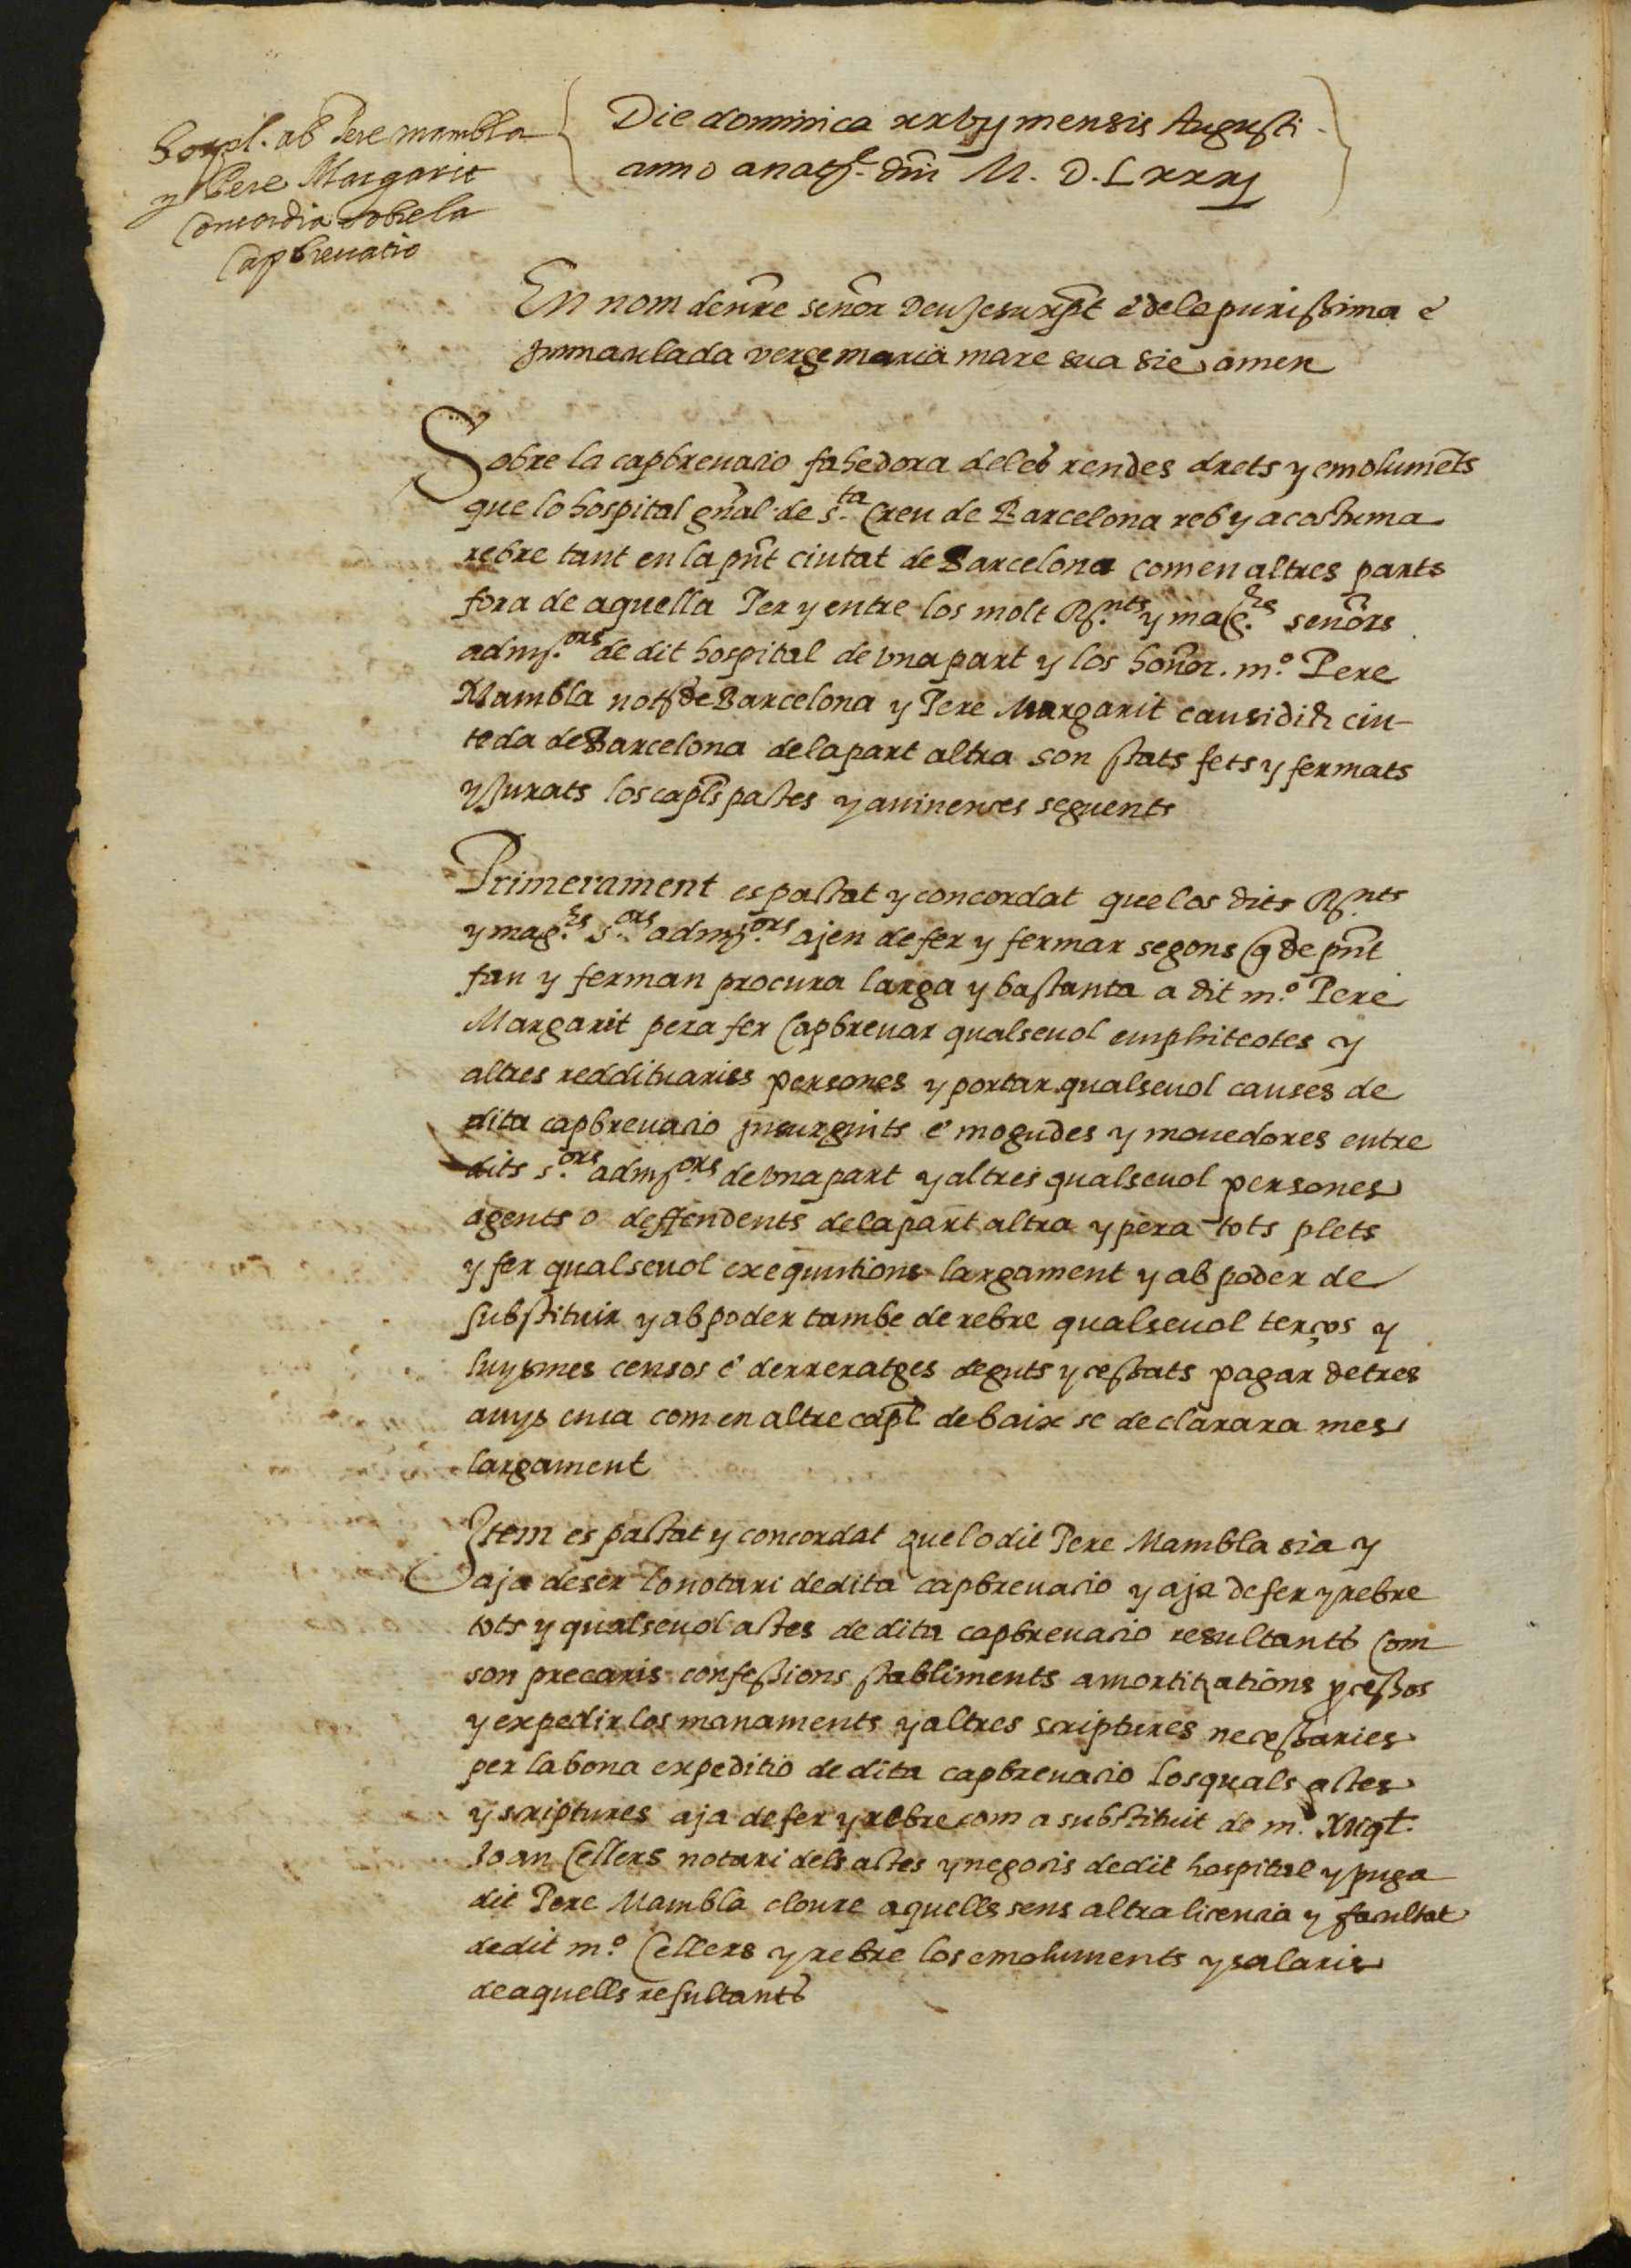 Hospl. ab Pere mambla
y Pere Margarit
Concordia sobre la
Capbreuatio
Die dominica xxvij mensis Augusti
anno a natˢ. dm̃i M. D. Lxxxj
En nom de nr̃e señor Deu Jesuxp̃t e de la purissima e
Jmmaculada verge maria mare sua sie amen
Sobre la capbreuacio fahedora deles rendes drets y emolumẽts
que lo hospital gñal de s.ta Creu de Barcelona reb y acostuma
rebre tant en la pñt ciutat de Barcelona com en altres parts
fora de aquella Per y entre los molt Rs.nts y mag.chs señors
admj.ors de dit hospital de vna part y los hoñor. m.º Pere
Mambla notͣ de Barcelona y Pere Margarit causidich ciu-
teda de Barcelona dela part altra son stats fets y fermats
y Jurats los capl̃s pactes y auinences seguents
Primerament es pactat y concordat que los dits Rs.nts
y mag.chs s.ors admj.ors ajen de fer y fermar segons q̃ de pñt
fan y ferman procura larga y bastanta a dit m.º Pere
Margarit pera fer Capbreuar qualseuol emphiteotes y
altres reddituariss persones y portar qualseuol causes de
dita capbreuacio jnsurgints e mogudes y mouedores entre
dits s.ors admj.ors de vna part y altres qualseuol persones
agents o deffendents dela part altra y pera tots plets
y fer qualseuol exequutions largament y ab poder de
substituir y ab poder tambe de rebre qualseuol terços y
luysmes censos e derreratges deguts y cessats pagar de tres
anys ença com en altre capl̃ debaix se declarara mes
largament
Jtem es pactat y concordat que lo dit Pere Mambla sia y
aja de ser lo notari de dita capbreuacio y aja de fer y rebre
tots y qualseuol actes de dita capbreuacio resultants Com
son precaris confessions stabliments amortitzations p̱cessos
y expedir los manaments y altres scriptures necessaries
per la bona expeditio de dita capbreuacio los quals actes
y scriptures aja de fer y rebre com a substituit de m.º
Joan Cellers notari dels actes y negocis de dit hospital y puga
dit Pere Mambla cloure aquells sens altra licencia y facultat
de dit m.º Cellers y rebre los emoluments y salaris
de aquells resultants